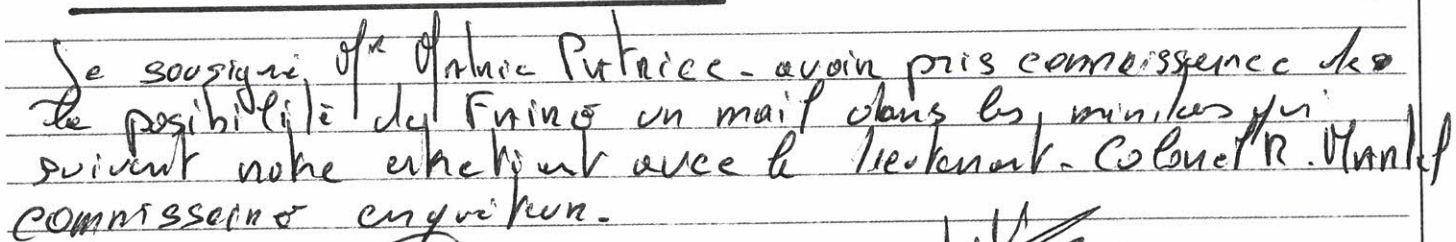 Je sousigné, Mr Patrice - avoir pris connaissance de
la posibilité de Faire un mail dans les minutes qui
suivent notre entretient avec le lieutenant-Colonel R.
commissaire enquêteur.